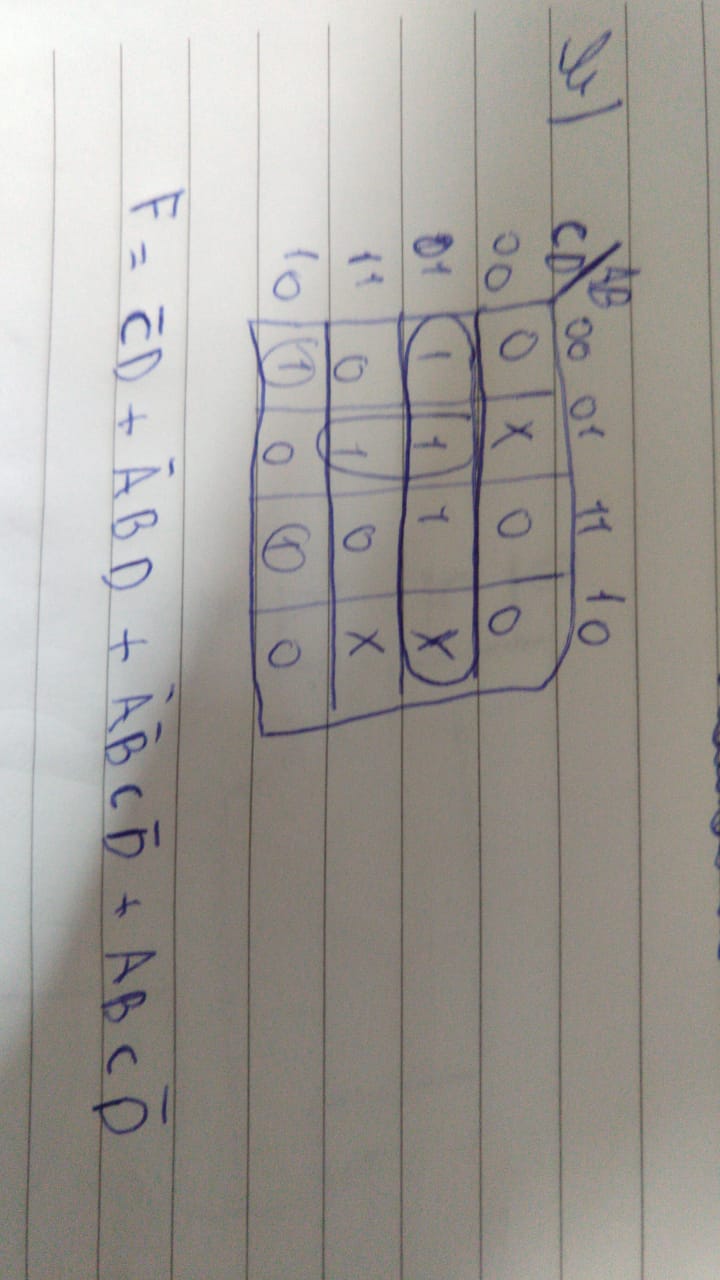 CD/AB 00 01 11 10
00 0 X 0 0
01 1 1 1 X
11 0 1 0 X
10 1 0 1 0
F = C̄D + ĀBD + ĀB̄CD̄ + ABCD̄